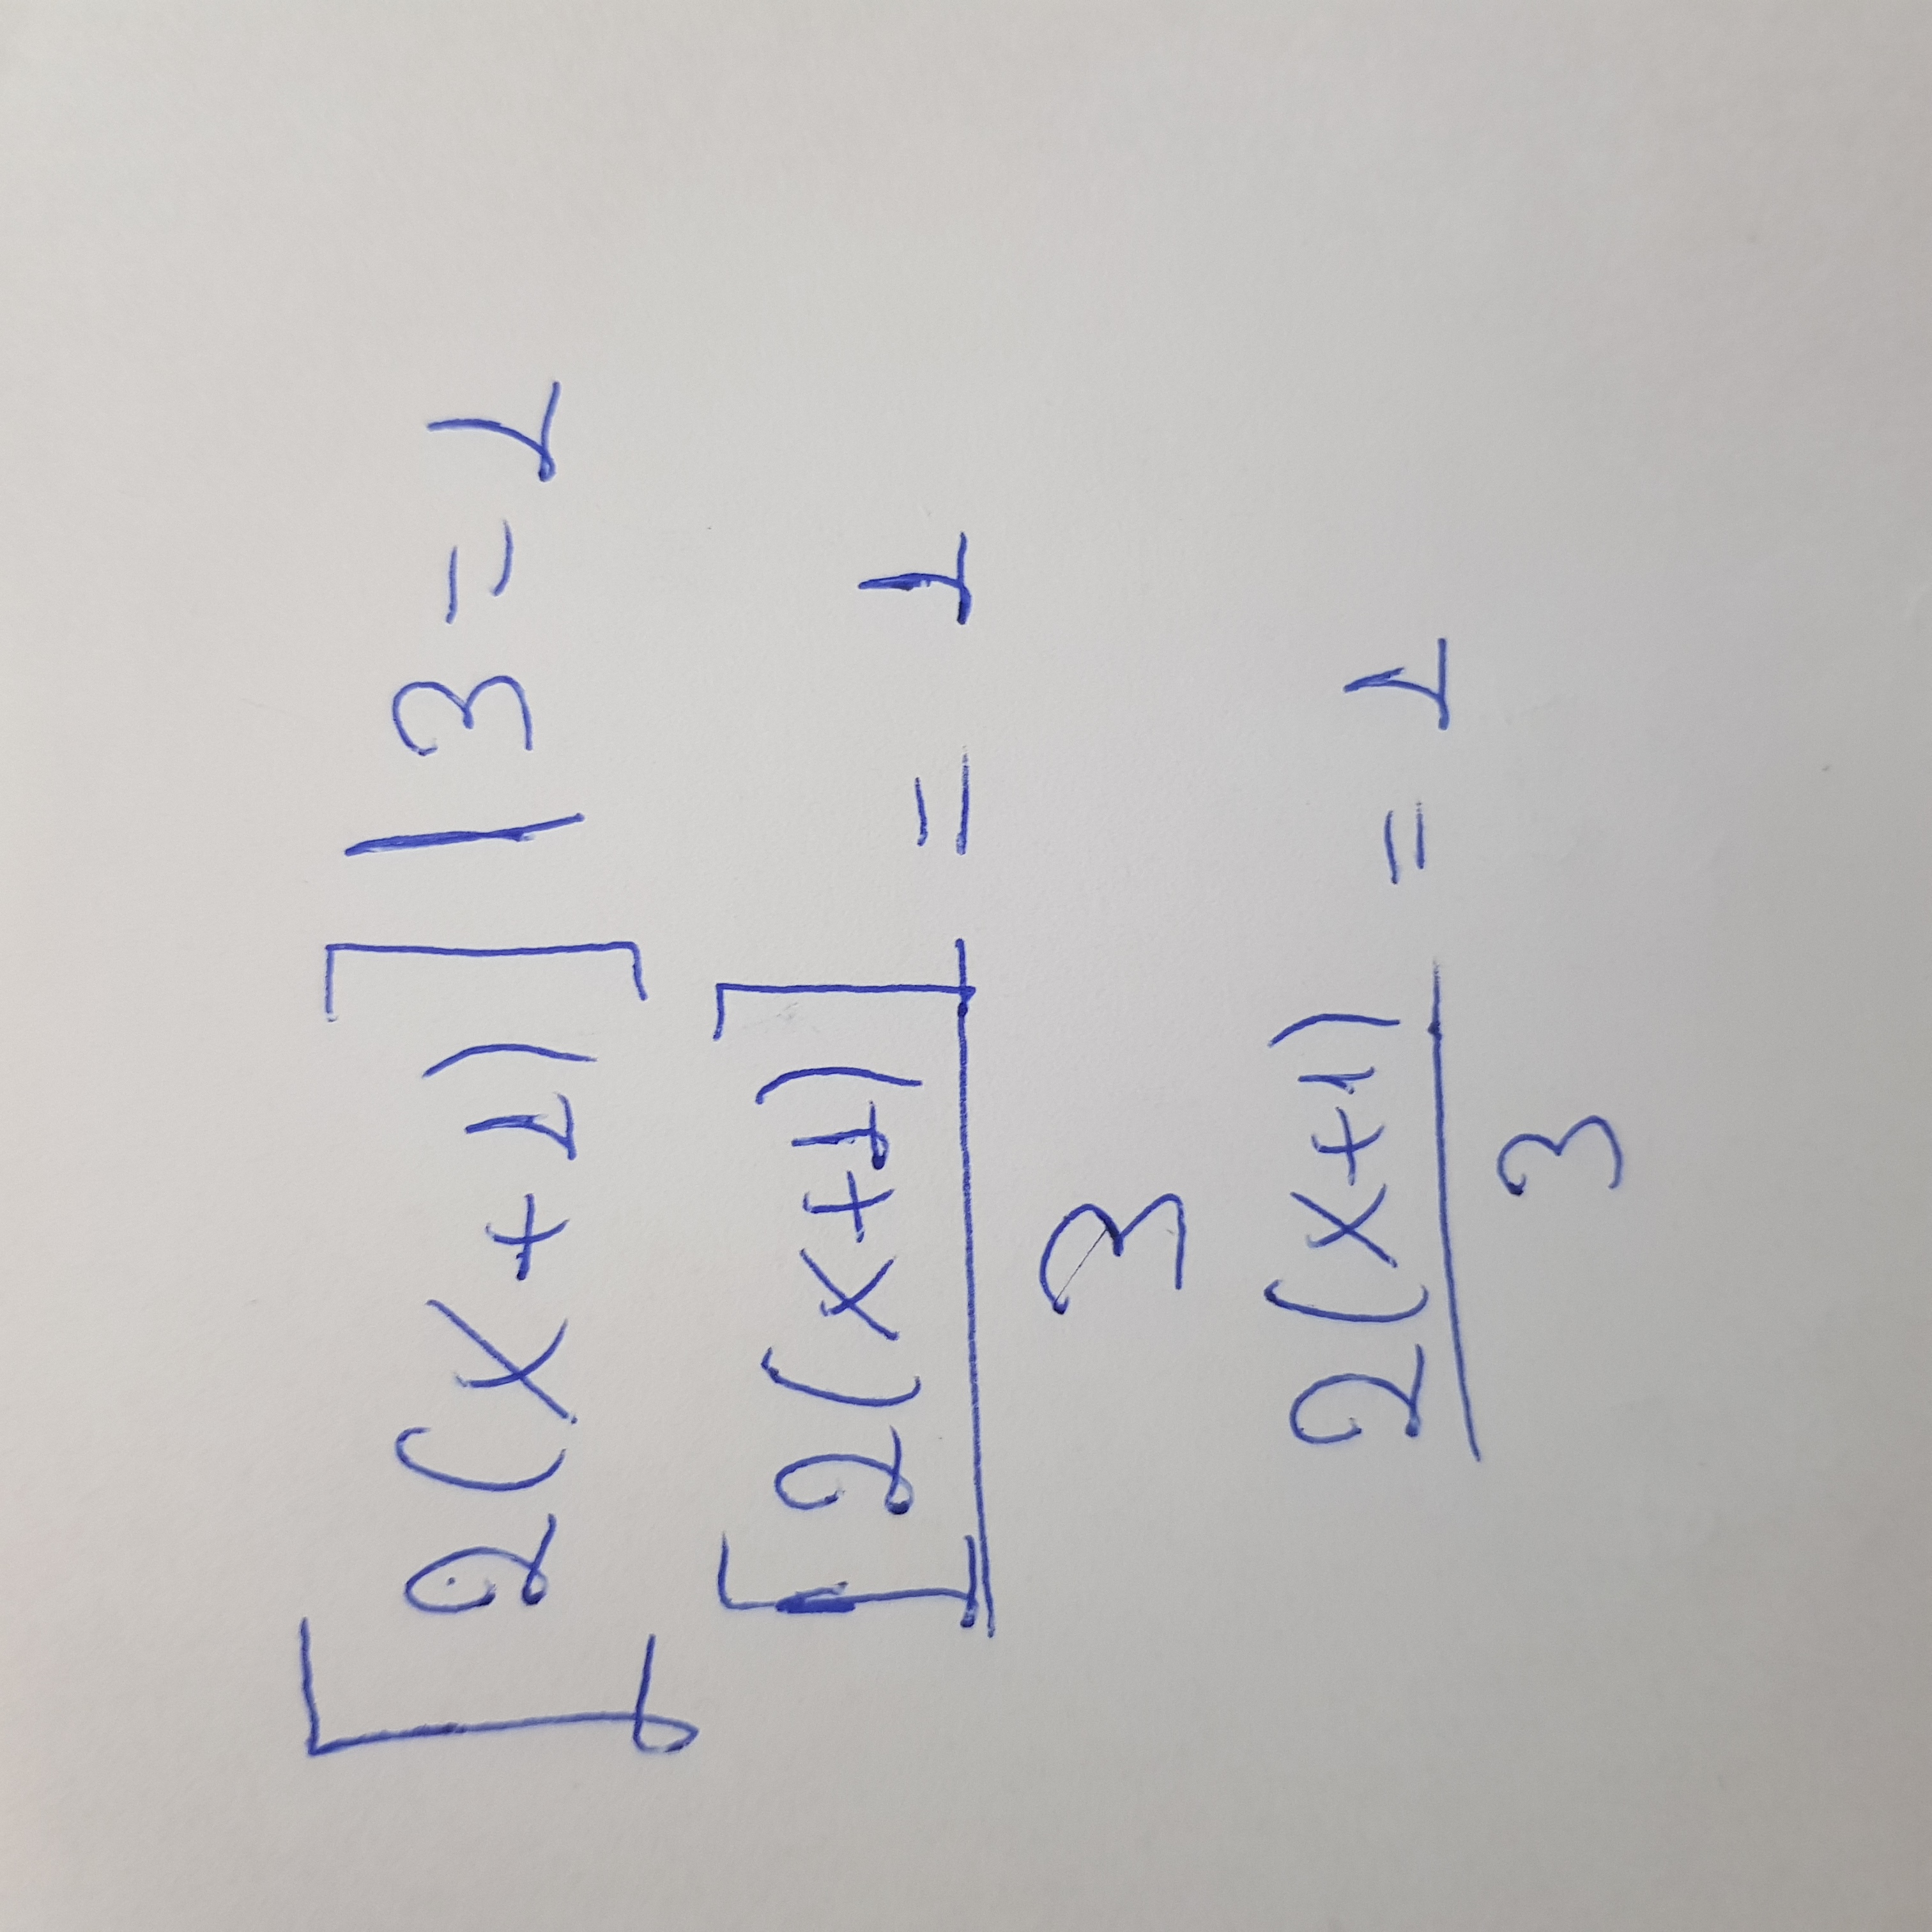 [2(x+1)] / 3 = 1
[2(x+1)]
3 = 1
2(x+1)
3 = 1